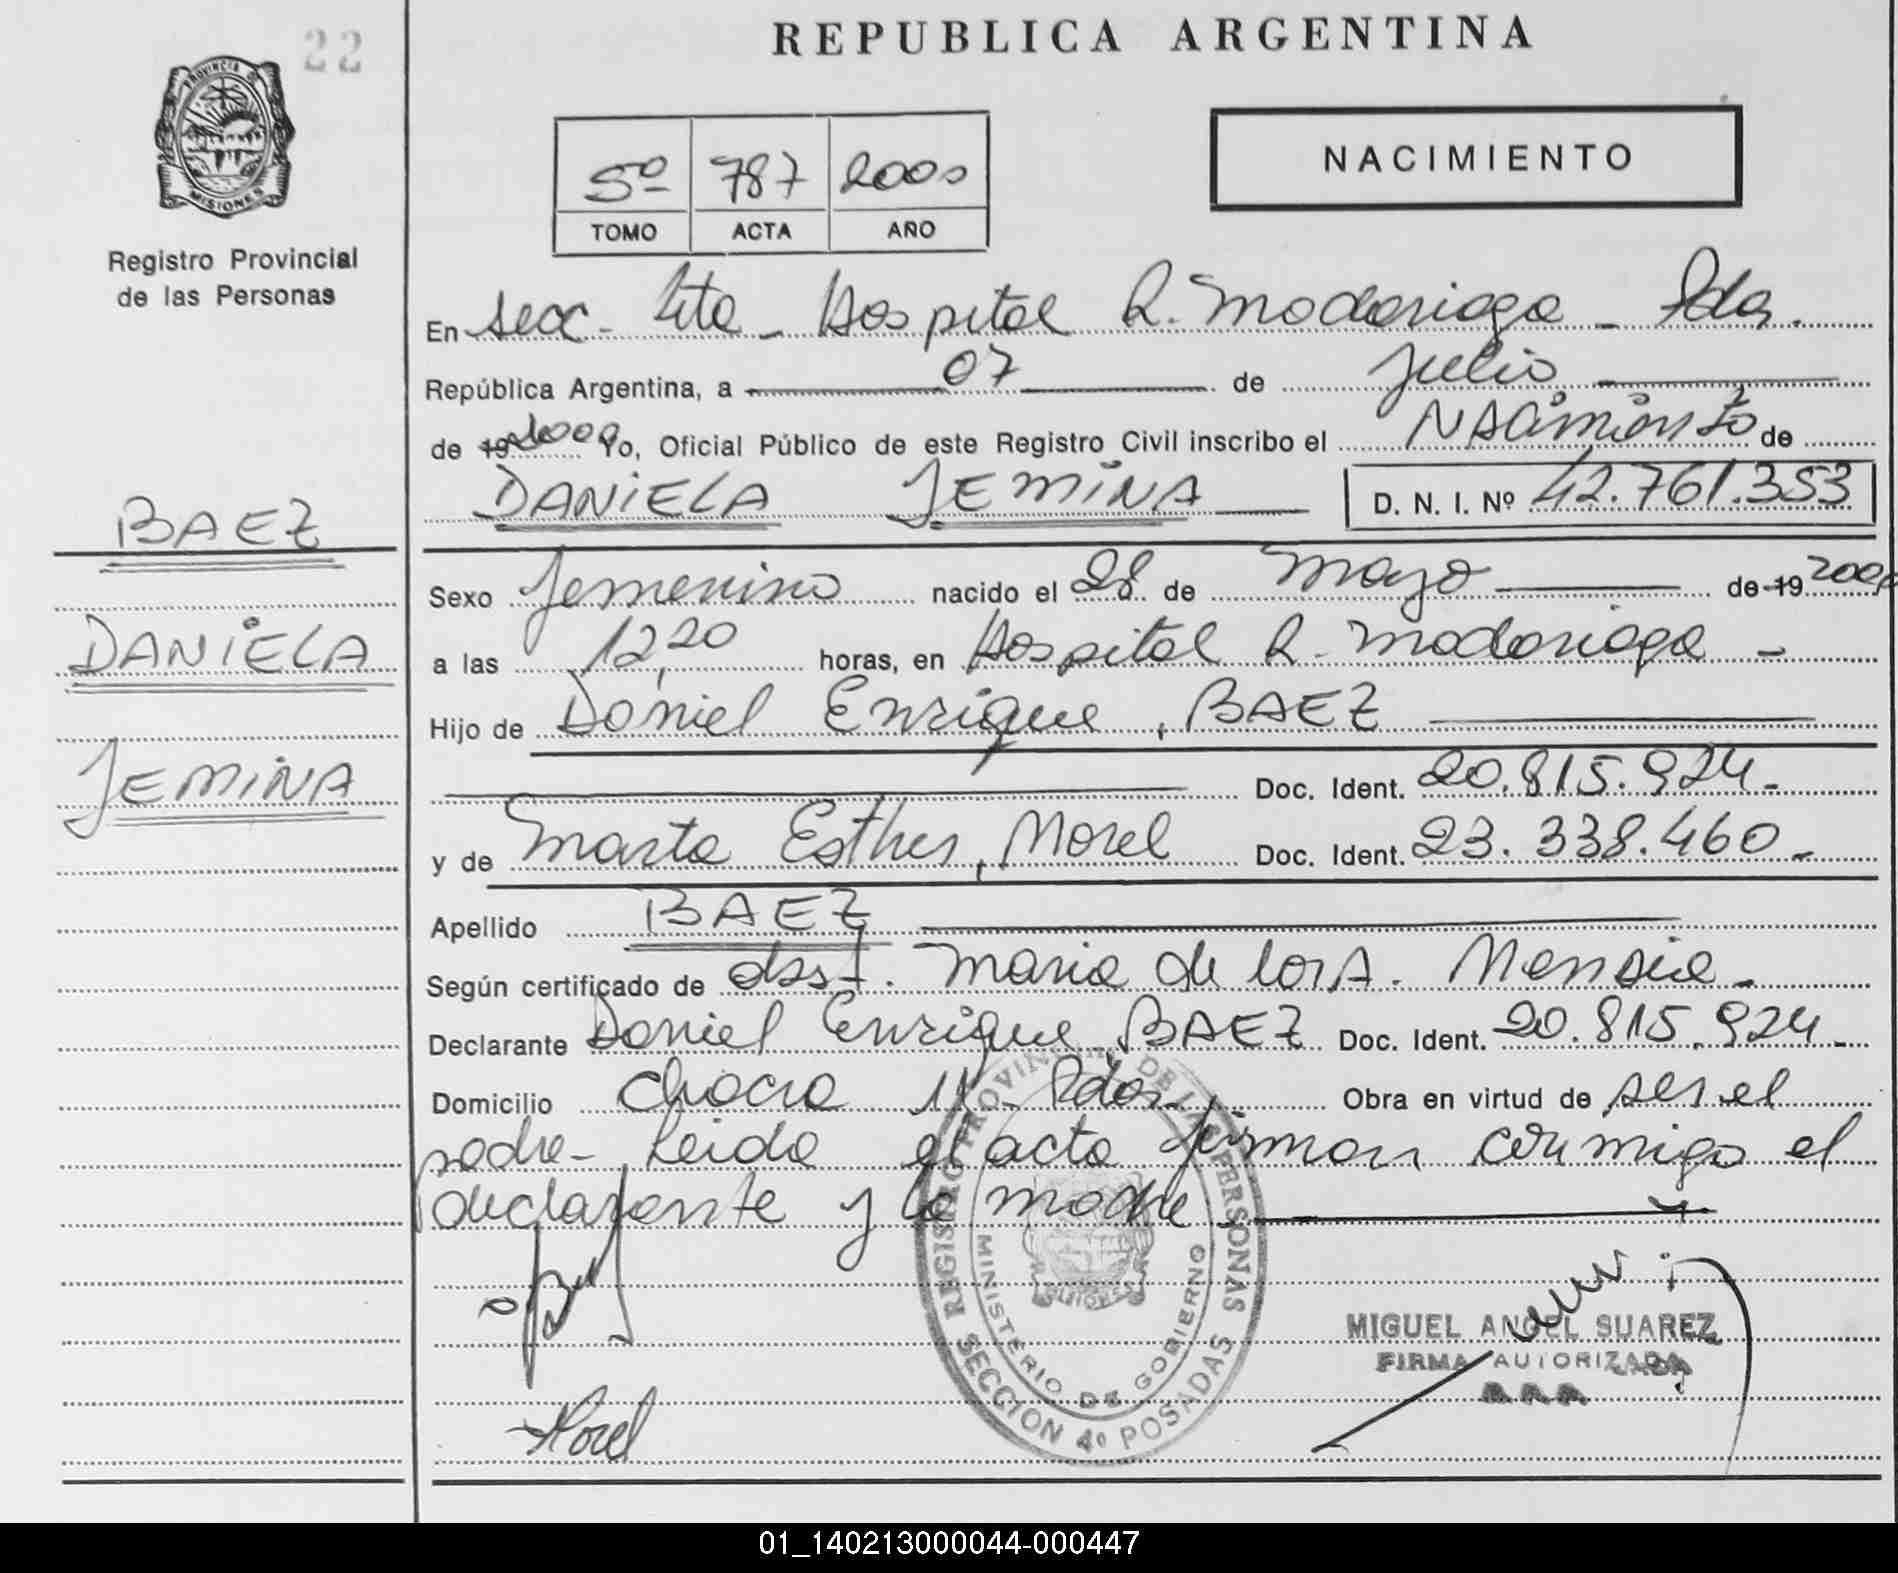 22
REPUBLICA ARGENTINA
PROVINCIA DE
MISIONES
Registro Provincial
de las Personas
5º 787 2000
TOMO ACTA AÑO
NACIMIENTO
En Secc. 4ta - Hospital R. Madariaga - Pdas.
República Argentina, a 07 de Julio
de 19 2000 Yo, Oficial Público de este Registro Civil inscribo el NACimiento de
DANiELA JEMiNA D. N. I. Nº 42.761.353
BAEZ
DANiELA
JEMiNA
Sexo femenino nacido el 28 de Mayo de 19 2000
a las 12,20 horas, en Hospital R. Madariaga -
Hijo de Daniel Enrique, BAEZ
Doc. Ident. 20.815.924.-
y de Marta Esther, Morel Doc. Ident. 23.338.460.-
Apellido BAEZ
Según certificado de obst. Maria de los A.
Declarante Daniel Enrique BAEZ Doc. Ident. 20.815.924.-
Domicilio Chacra 11 - Pdas.- Obra en virtud de ser el
padre- Leida el acta firman conmigo el
declarante y la madre
REGISTRO PROVINCIAL DE LAS PERSONAS
MINISTERIO DE GOBIERNO
MISIONES
SECCION 4º POSADAS
MIGUEL ANGEL SUAREZ
FIRMA AUTORIZADA
Morel
01_140213000044-000447